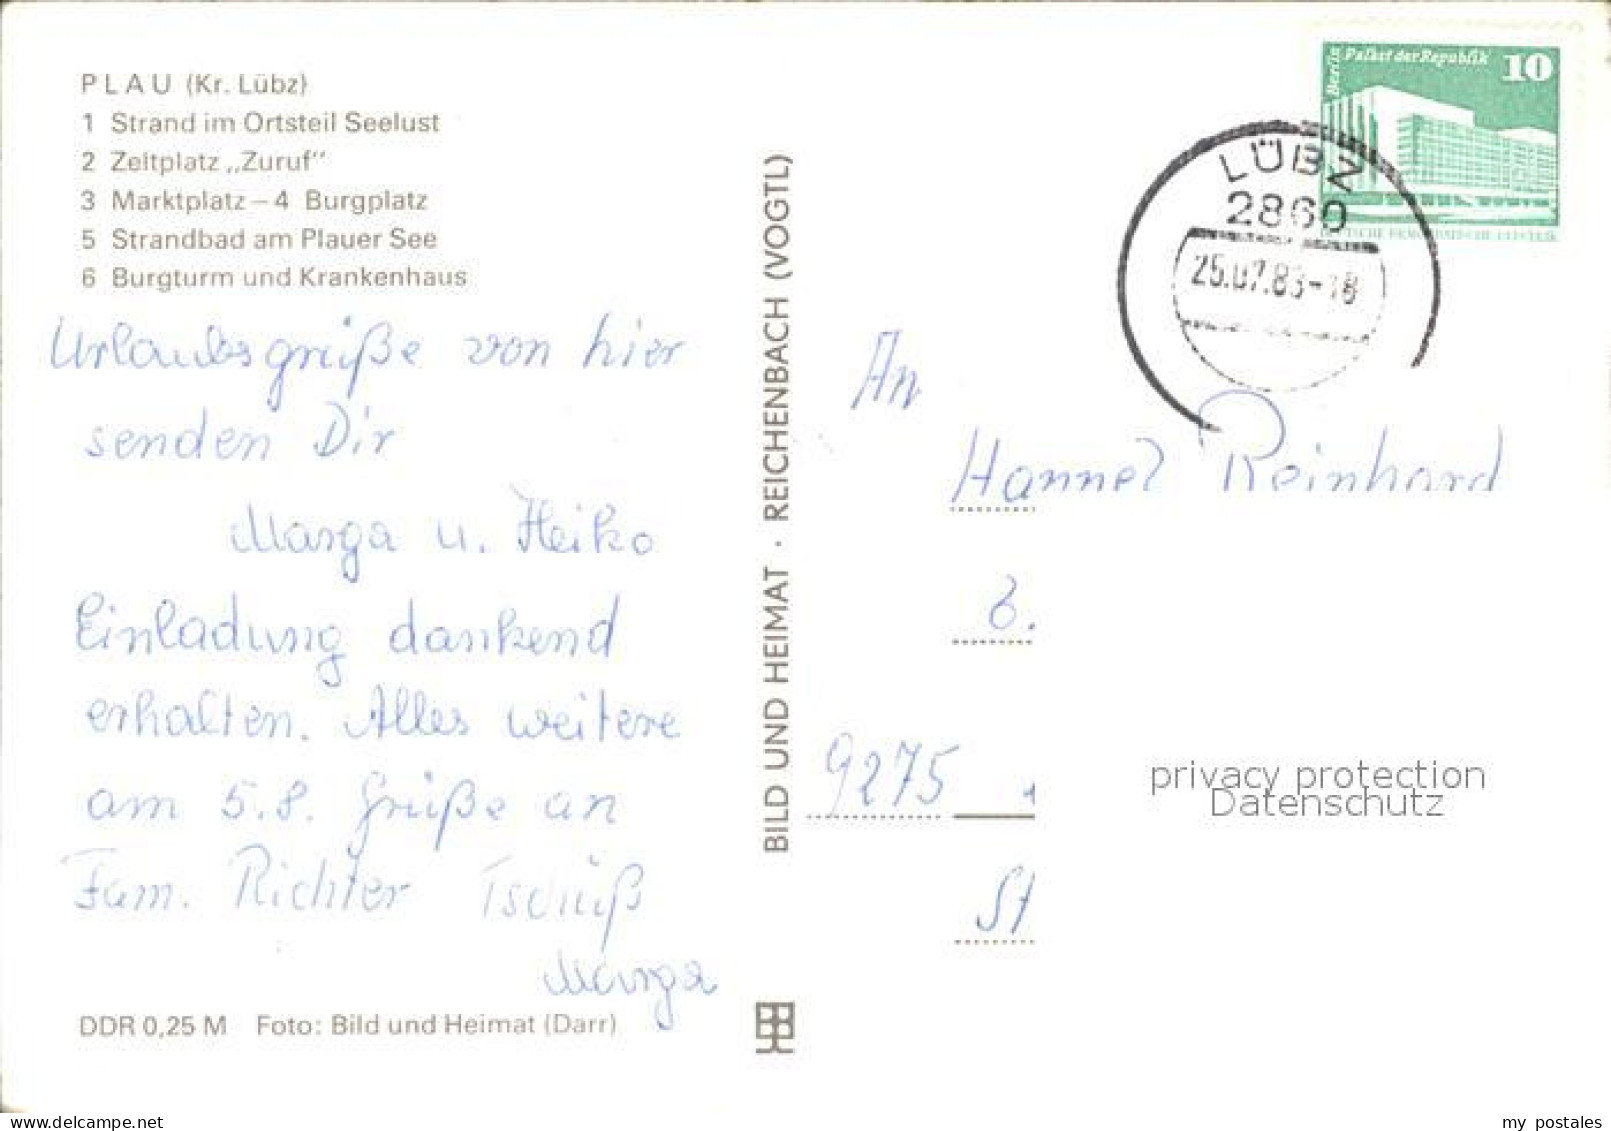 PLAU (Kr. Lübz)
1 Strand im Ortsteil Seelust
2 Zeltplatz „Zuruf“
3 Marktplatz – 4 Burgplatz
5 Strandbad am Plauer See
6 Burgturm und Krankenhaus
Urlaubsgrüße von hier
senden Dir
Marga u. Heiko
Einladung dankend
erhalten. Alles weitere
am 5.8. Grüße an
Fam. Richter Tschüß
Marga
DDR 0,25 M Foto: Bild und Heimat (Darr)
BILD UND HEIMAT · REICHENBACH (VOGTL)
Berlin
Palast der Republik
10
DEUTSCHE DEMOKRATISCHE REPUBLIK
LÜBZ
2860
25.07.83-18
An
Reinhard
9275
St
privacy protection
Datenschutz
my postales